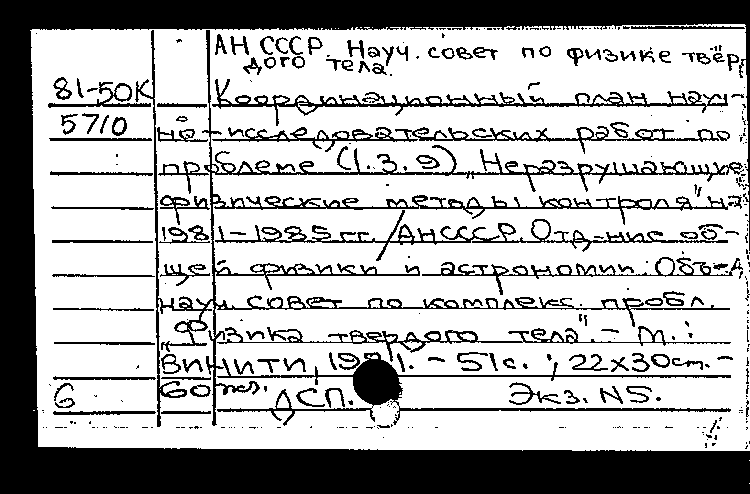 АН СССР. Науч. совет по физике твёр
дого тела.
81-50К Координационный план науч-
5710 но-исследовательских работ по
проблеме (1.3.9) „Неразрушающие
физические методы контроля" на
1981-1985 гг. / АН СССР. Отд-ние об-
щей физики и астрономии. Объед.
науч. совет по комплекс. пробл.
„Физика твердого тела". - М.:
ВИНИТИ, 1981. - 51 с.; 22х30 см. -
60 экз.
6 ДСП. Экз. N5.